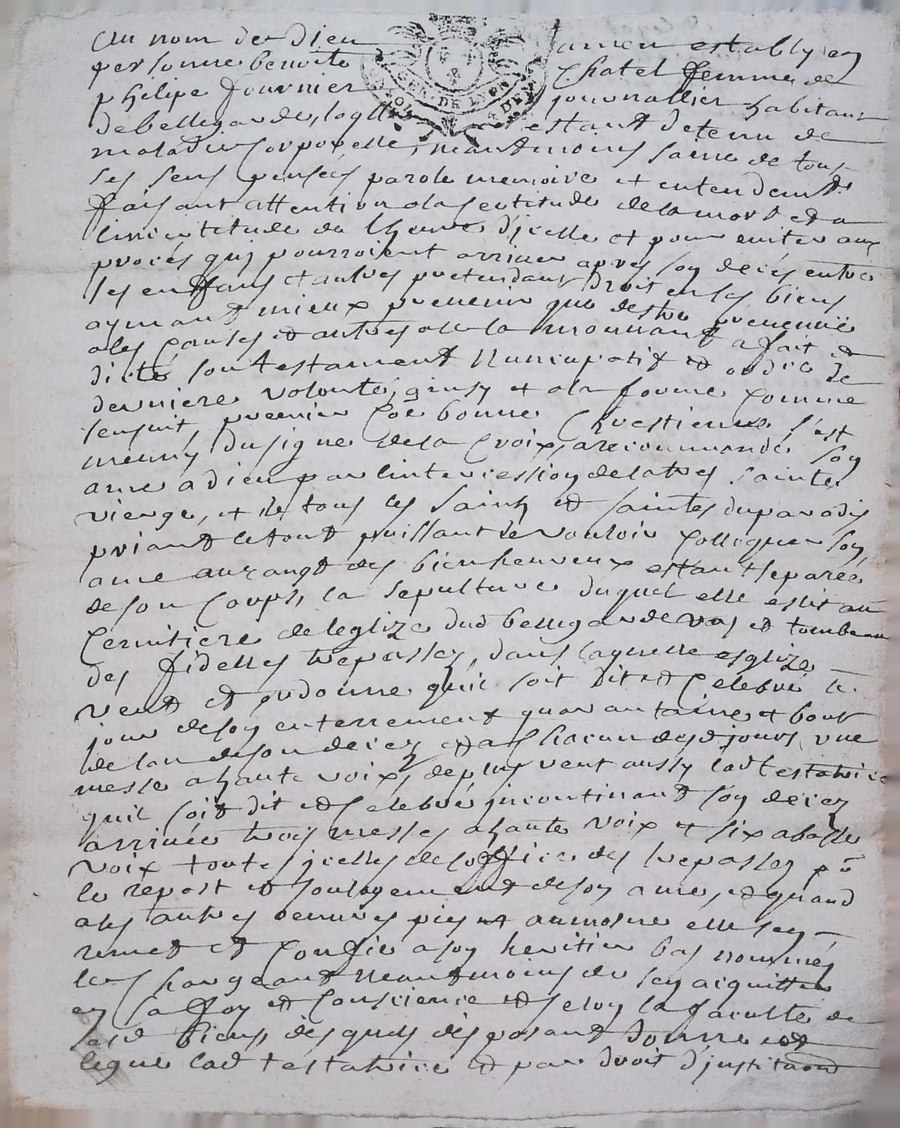 Au nom de dieu amen estably en
personne benoite Chatel femme de
philipe fournier journallier habitant
GENER. DE LYON
SOL
4 DE
de bellegarde, laqlle estant detenu de
maladie Corporelle, neantmoins saine de tous
ses sens pensées parole memoire et entendemt
faisant attention a la sertitude de la mort et a
lincertitude de lheure djcelle et pour eviter aux
procés quj pourroient arriver apres son decés entre
ses enffans et autres pretendant droit en ses biens
aymant mieux prevenir que destre prevenuë
a les causes et autres alle la mouvant a fait et
dicté son testament Nuncupatif et ordce de
derniere volonté, ainsy et a la forme comme
sensuit, premier Coe bonne Chrestienne s'est
munny du signe de la Croix, a recommandé son
ame a dieu par lintercession de la tres sainte
vierge, et de tous les saints et saintes du paradis
priant le tout puissant de vouloir colloquer son
ame au rangt des bienheureux estant separée
de son Corps, la sepulture duquel elle eslit au
Cemitiere de leglize dud bellegarde vas et tombeau
des fidelles trepassez, dans laquelle esglize
veut et ordonne quil soit dit et Celebré le
jour de son enterrement quarantaine et bout
de lan de son decez et a chacun desd jours, une
messe a haute voix, de plus veut aussy lad testatrice
quil soit dit et Celebré jncontinant son decez
arrivée trois messes a haute voix et six a basse
voix toutes jcelles de loffice des trepassez pr
le repost et soulagement de son ame, et quand
a les autres oeuvres pies et aumosne elle sen
remet et Confie a son heritier bas nommés
les chargeant neantmoins de sen aiquitter
en sa foy et Conscience et selon la faculté de
sesd biens, desquels disposant donne et
legue lad testatrice et par droit djnstitaon